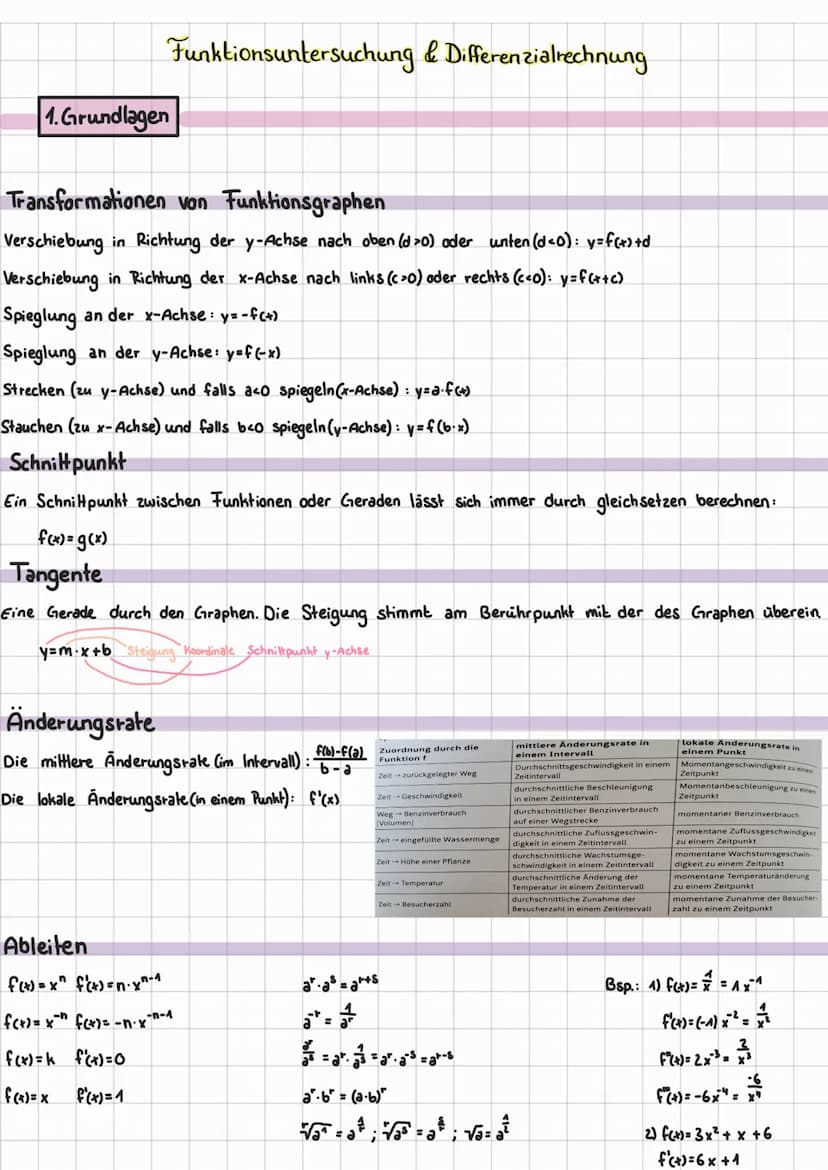 Funktionsuntersuchung & Differenzialrechnung
1. Grundlagen
Transformationen von Funktionsgraphen
Verschiebung in Richtung der y-Achse nach oben (d>0) oder unten (d<0): y=f(x)+d
Verschiebung in Richtung der x-Achse nach links (c>0) oder rechts (c<0): y=f(x+c)
Spieglung an der x-Achse: y=-f(x)
Spieglung an der y-Achse: y=f(-x)
Strecken (zu y-Achse) und falls a<0 spiegeln (x-Achse): y=a·f(x)
Stauchen (zu x-Achse) und falls b<0 spiegeln (y-Achse): y=f(b·x)
Schnittpunkt
Ein Schnittpunkt zwischen Funktionen oder Geraden lässt sich immer durch gleichsetzen berechnen:
f(x)=g(x)
Tangente
Eine Gerade durch den Graphen. Die Steigung stimmt am Berührpunkt mit der des Graphen überein
y=m·x+b Steigung Koordinate Schnittpunkt y-Achse
Änderungsrate
Die mittlere Änderungsrate (im Intervall): f(b)-f(a) / b-a
Die lokale Änderungsrate (in einem Punkt): f'(x)
Zuordnung durch die Funktion f | mittlere Änderungsrate in einem Intervall | lokale Änderungsrate in einem Punkt
Zeit → zurückgelegter Weg | Durchschnittsgeschwindigkeit in einem Zeitintervall | Momentangeschwindigkeit zu einem Zeitpunkt
Zeit → Geschwindigkeit | durchschnittliche Beschleunigung in einem Zeitintervall | Momentanbeschleunigung zu einem Zeitpunkt
Weg → Benzinverbrauch (Volumen) | durchschnittlicher Benzinverbrauch auf einer Wegstrecke | momentaner Benzinverbrauch
Zeit → eingefüllte Wassermenge | durchschnittliche Zuflussgeschwindigkeit in einem Zeitintervall | momentane Zuflussgeschwindigkeit zu einem Zeitpunkt
Zeit → Höhe einer Pflanze | durchschnittliche Wachstumsgeschwindigkeit in einem Zeitintervall | momentane Wachstumsgeschwindigkeit zu einem Zeitpunkt
Zeit → Temperatur | durchschnittliche Änderung der Temperatur in einem Zeitintervall | momentane Temperaturänderung zu einem Zeitpunkt
Zeit → Besucherzahl | durchschnittliche Zunahme der Besucherzahl in einem Zeitintervall | momentane Zunahme der Besucherzahl zu einem Zeitpunkt
Ableiten
f(x)=xⁿ f'(x)=n·xⁿ⁻¹
f(x)=x⁻ⁿ f(x)=-n·x⁻ⁿ⁻¹
f(x)=k f'(x)=0
f(x)=x f'(x)=1
a^r·a^s=a^(r+s)
a^-r = 1/a^r
a^r/a^s = a^r·1/a^s = a^r·a^-s = a^(r-s)
a^r·b^r = (a·b)^r
ʳ√a¹ = a^(1/r) ; ʳ√a^s = a^(s/r) ; √a = a^(1/2)
Bsp.: 1) f(x)= 1/x = 1x⁻¹
f'(x)=(-1)x⁻² = 1/x²
f''(x)=2x⁻³ = 2/x³
f'''(x)=-6x⁻⁴ = -6/x⁴
2) f(x)=3x²+x+6
f'(x)=6x+1